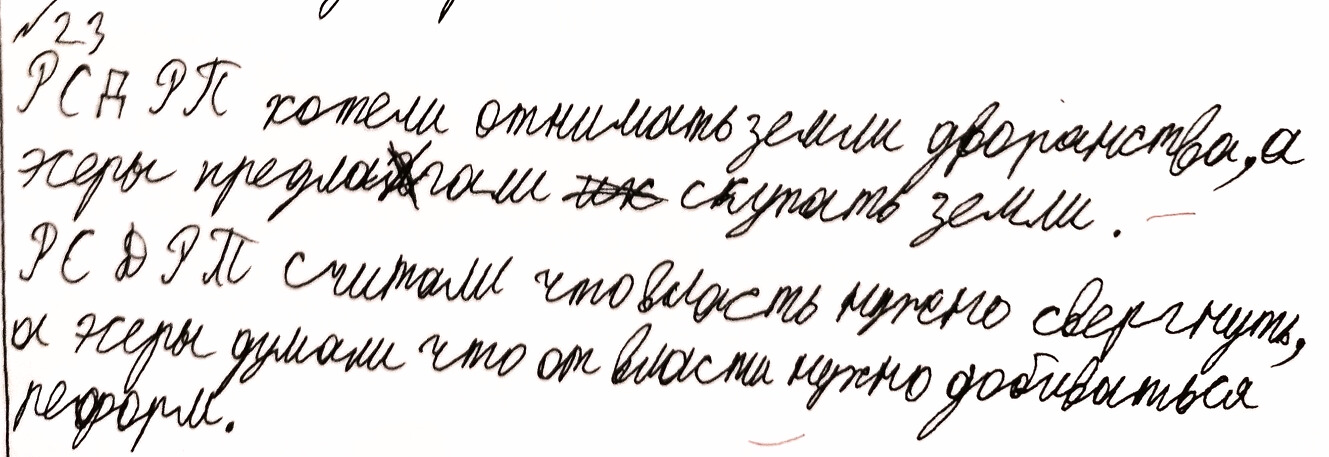 №23
РСДРП хотели отнимать земли дворянства, а
эсеры предлагали скупать земли.
РСДРП считали что власть нужно свергнуть,
а эсеры думали что от власти нужно добиваться
реформ.